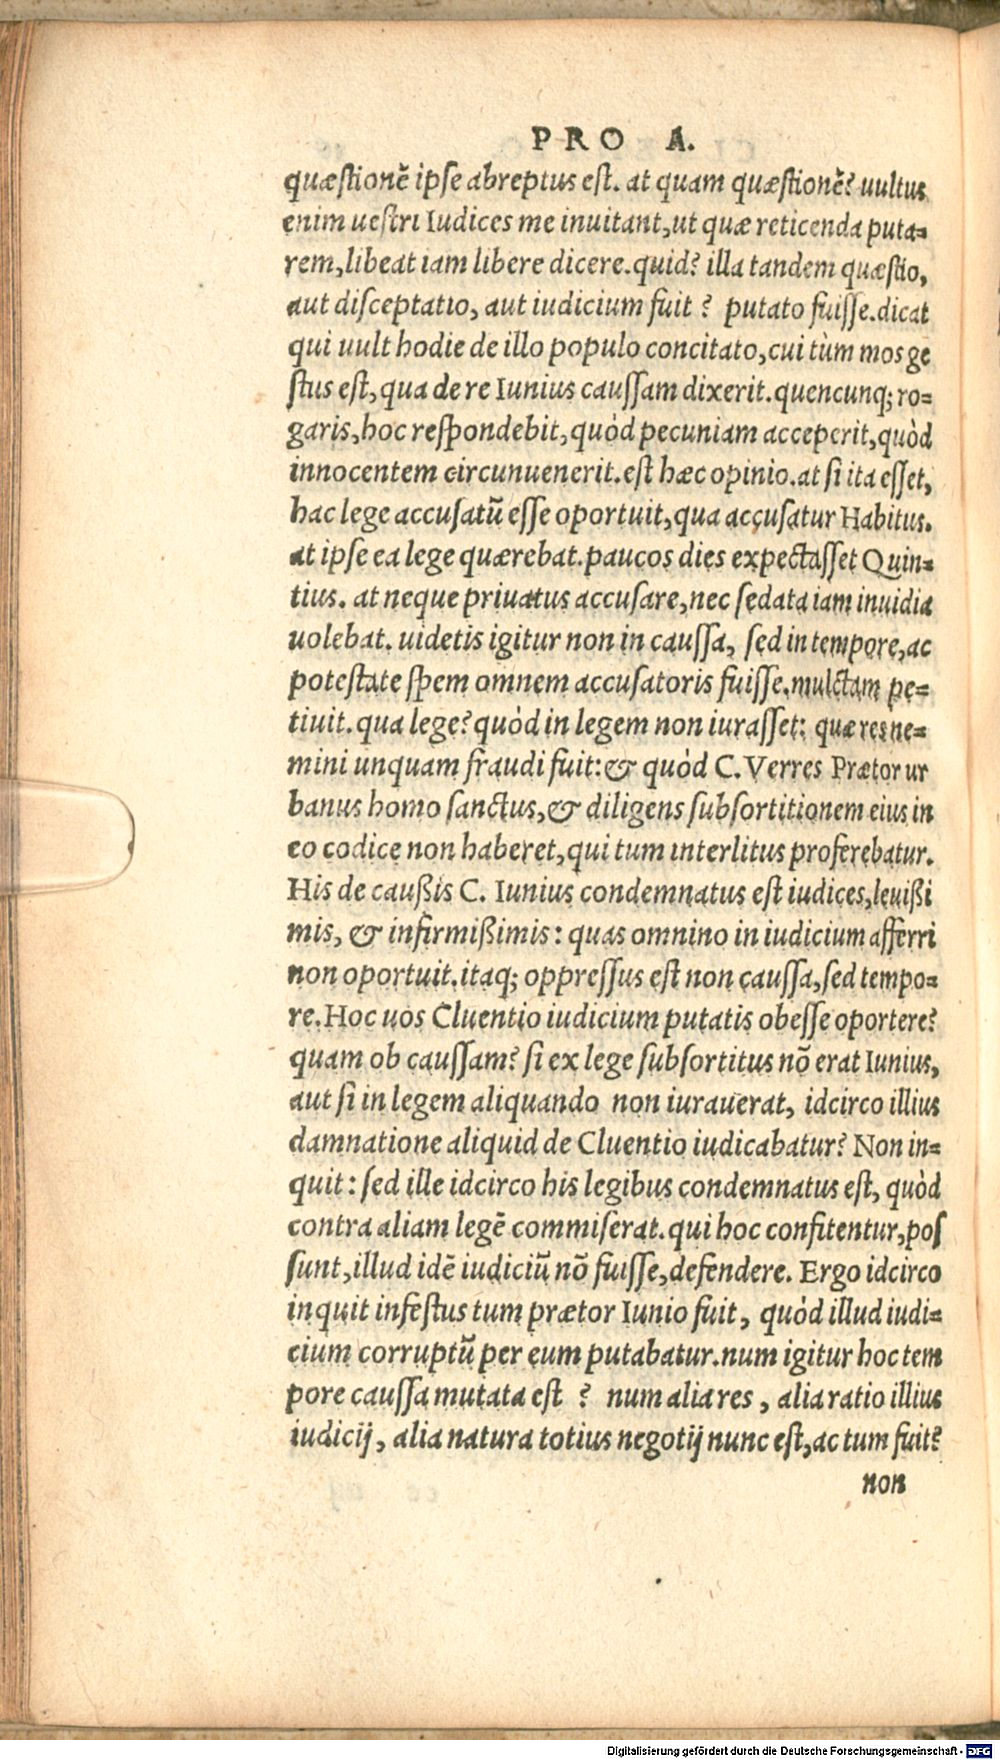 PRO A.
quæstionẽ ipse abreptus est. at quam quæstionẽ? uultus
enim uestri Iudices me inuitant, ut quæ reticenda puta-
rem, libeat iam libere dicere. quid? illa tandem quæstio,
aut disceptatio, aut iudicium fuit? putato fuisse. dicat
qui uult hodie de illo populo concitato, cui tùm mos ge
stus est, qua de re Iunius caussam dixerit. quencunq; ro-
garis, hoc respondebit, quòd pecuniam acceperit, quòd
innocentem circunuenerit. est hæc opinio. at si ita esset,
hac lege accusatũ esse oportuit, qua accusatur Habitus.
at ipse ea lege quærebat. paucos dies expectasset Quin-
tius. at neque priuatus accusare, nec sedata iam inuidia
uolebat. uidetis igitur non in caussa, sed in tempore, ac
potestate spem omnem accusatoris fuisse. mulctam pe-
tiuit. qua lege? quòd in legem non iurasset: quæ res ne-
mini unquam fraudi fuit: & quòd C. Verres Prætor ur
banus homo sanctus, & diligens subsortitionem eius in
eo codice non haberet, qui tum interlitus proferebatur.
His de caußis C. Iunius condemnatus est iudices, leuißi
mis, & infirmißimis: quas omnino in iudicium afferri
non oportuit. itaq; oppressus est non caussa, sed tempo-
re. Hoc uos Cluentio iudicium putatis obesse oportere?
quam ob caussam? si ex lege subsortitus nõ erat Iunius,
aut si in legem aliquando non iurauerat, idcirco illius
damnatione aliquid de Cluentio iudicabatur? Non in-
quit: sed ille idcirco his legibus condemnatus est, quòd
contra aliam legẽ commiserat. qui hoc confitentur, pos
sunt, illud idẽ iudiciũ nõ fuisse, defendere. Ergo idcirco
inquit infestus tum prætor Iunio fuit, quòd illud iudi-
cium corruptũ per eum putabatur. num igitur hoc tem
pore caussa mutata est? num alia res, alia ratio illius
iudicij, alia natura totius negotij nunc est, ac tum fuit?
non
Digitalisierung gefördert durch die Deutsche Forschungsgemeinschaft - DFG